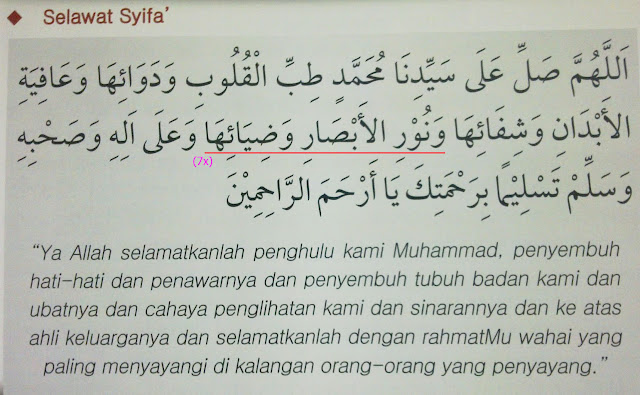 Selawat Syifa’
اَللَّهُمَّ صَلِّ عَلَى سَيِّدِنَا مُحَمَّدٍ طِبِّ الْقُلُوبِ وَدَوَائِهَا وَعَافِيَةِ
الأَبْدَانِ وَشِفَائِهَا وَنُوْرِ الأَبْصَارِ وَضِيَائِهَا وَعَلَى اَلِهِ وَصَحْبِهِ
(7x)
وَسَلِّمْ تَسْلِيْمًا بِرَحْمَتِكَ يَا أَرْحَمَ الرَّاحِمِيْنَ
“Ya Allah selamatkanlah penghulu kami Muhammad, penyembuh
hati-hati dan penawarnya dan penyembuh tubuh badan kami dan
ubatnya dan cahaya penglihatan kami dan sinarannya dan ke atas
ahli keluarganya dan selamatkanlah dengan rahmatMu wahai yang
paling menyayangi di kalangan orang-orang yang penyayang.”